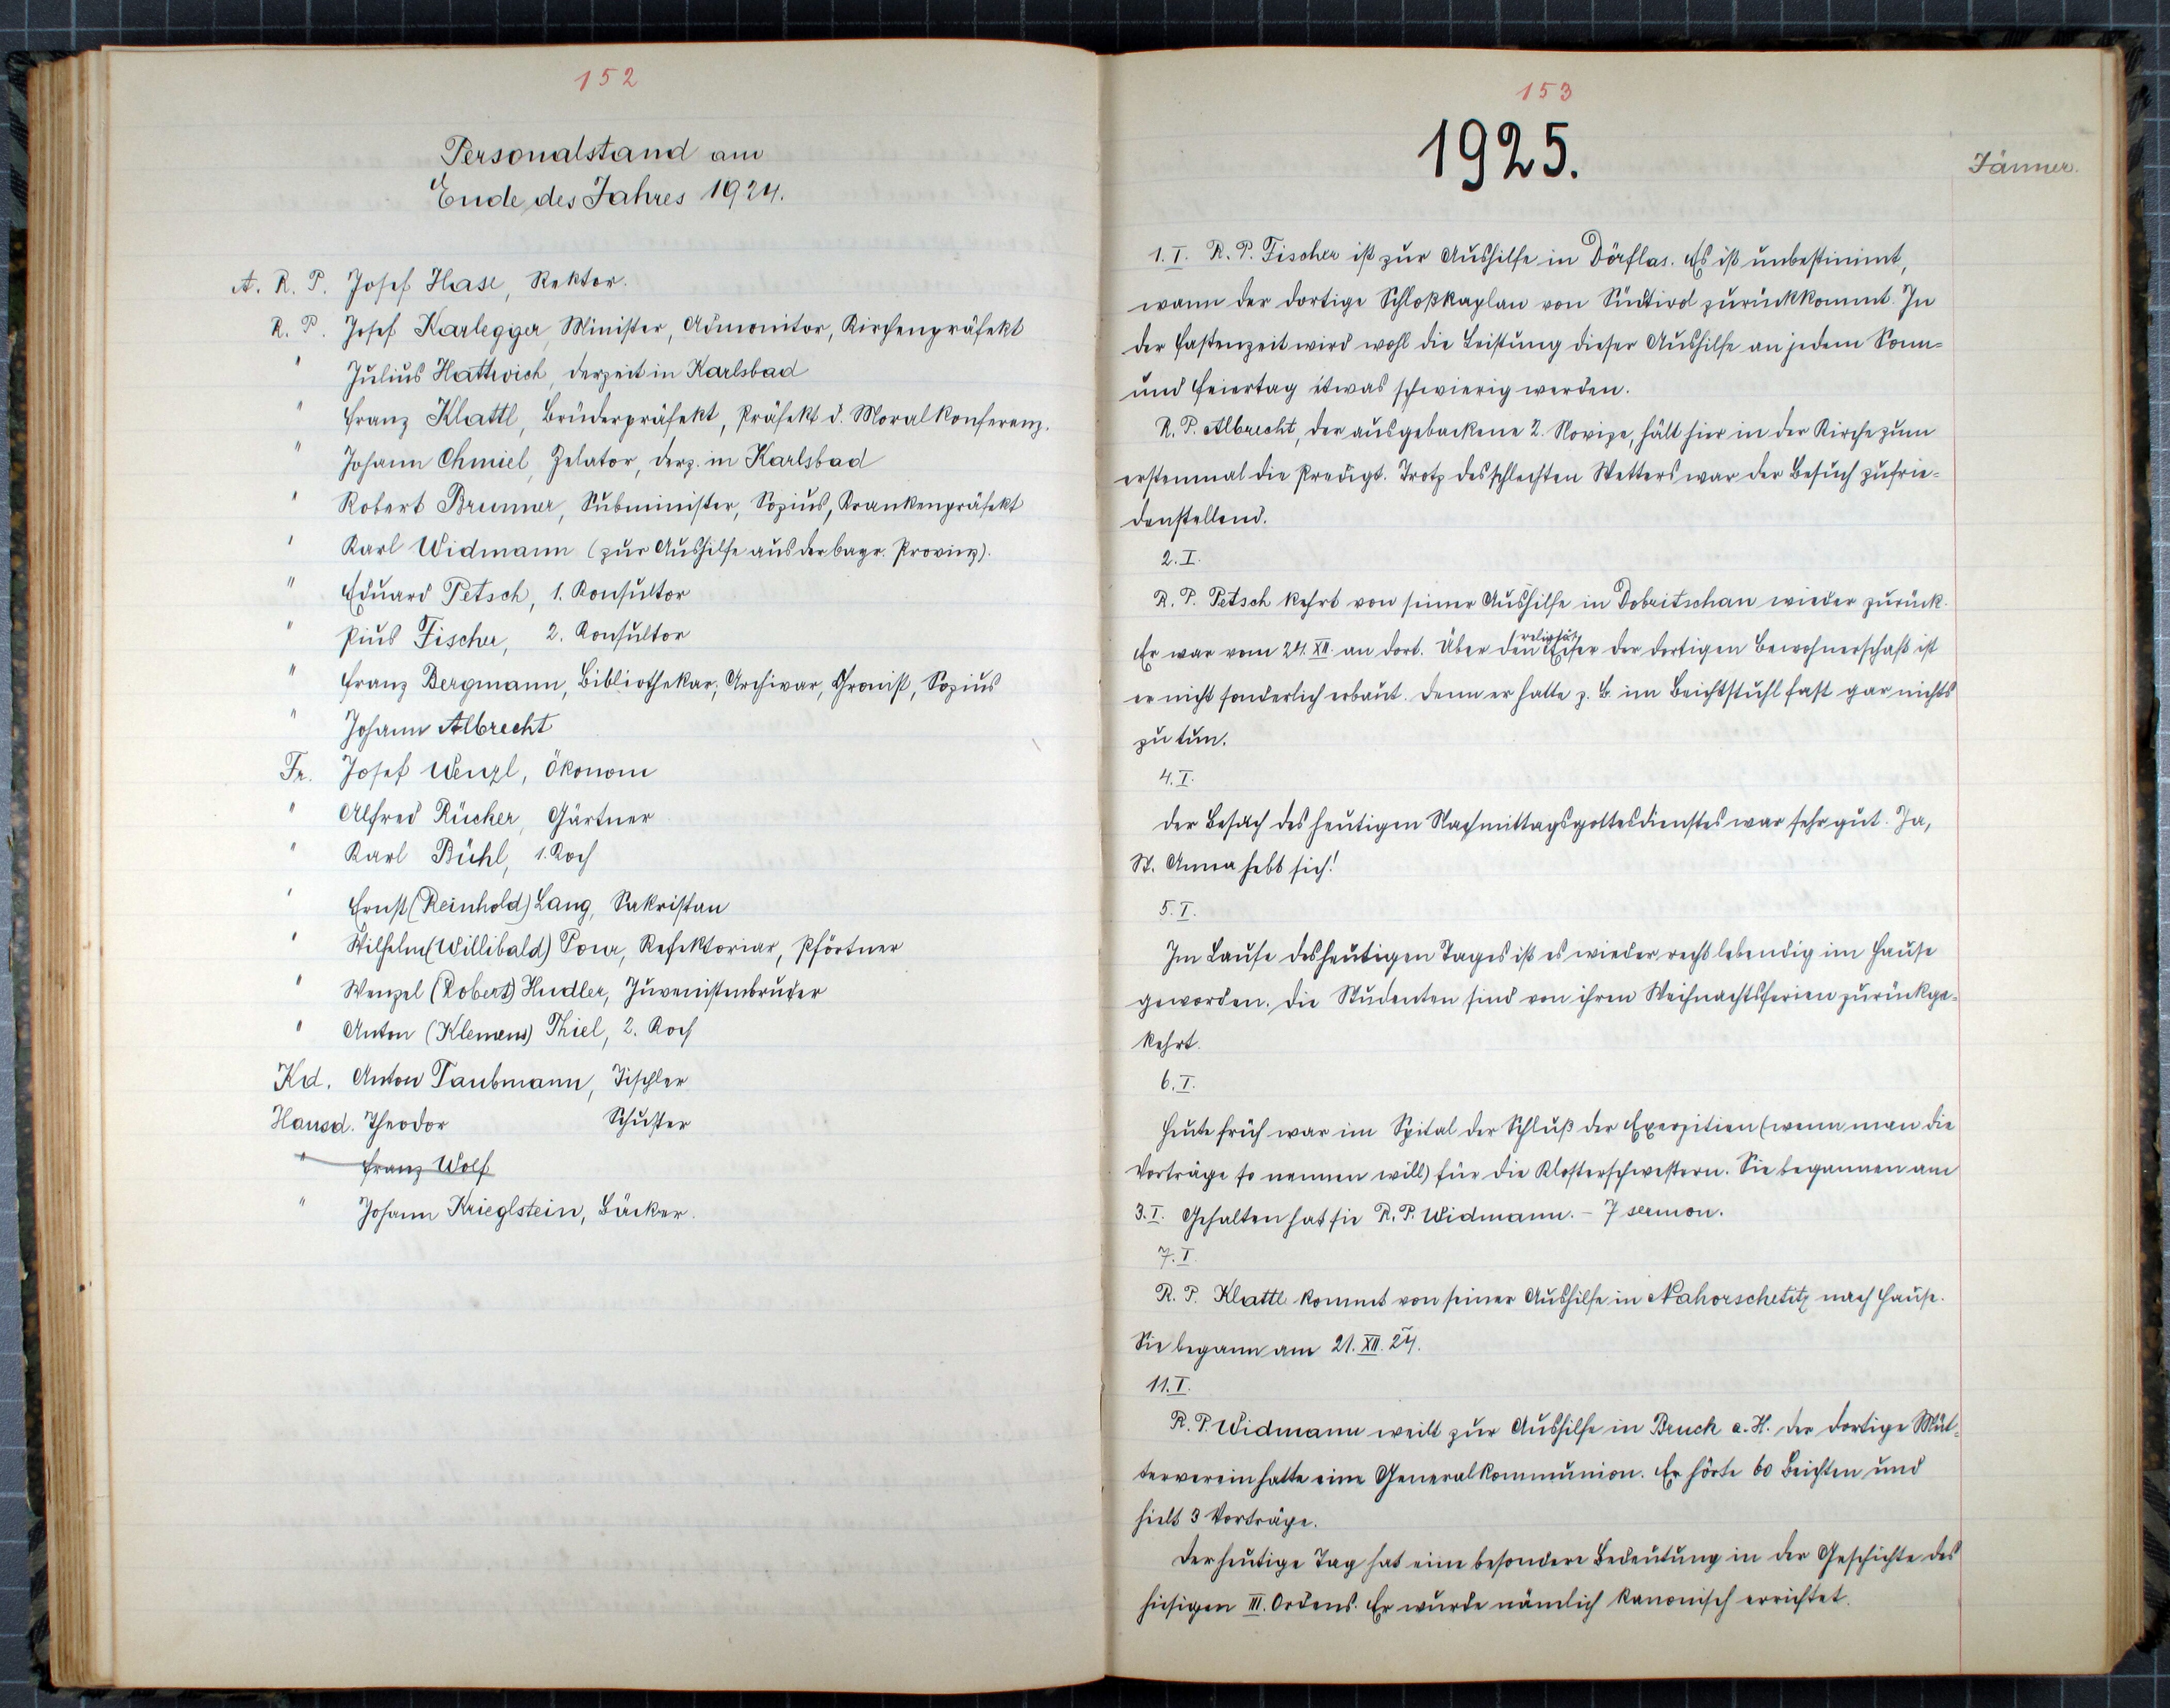 152
Personalstand am
Ende des Jahres 1924.
A. R. P. Josef Hase, Rektor.
R. P. Josef Karlegger, Minister, Admonitor, Kirchenpräfekt
" Julius Hattwich, derzeit in Karlsbad
" Franz Klattl, Brüderpräfekt, Präfekt d. Moralkonferenz.
" Johann Chmiel, Zelator, derz. in Karlsbad
" Robert Brunner, Subminister, Sozius, Krankenpräfekt
" Karl Widmann (zur Aushilfe aus der bayr. Provinz).
" Eduard Petsch, 1. Konsultor
" Pius Fischer, 2. Konsultor
" Franz Bergmann, Bibliothekar, Archivar, Chronist, Sozius
" Johann Albrecht
Fr. Josef Wenzl, Ökonom
" Alfred Rücker, Gärtner
" Karl Bühl, 1. Koch
" Ernst (Reinhold) Lang, Sakristan
" Wilhelm (Willibald) Pour, Refektoriar, Pförtner
" Wenzel (Robert) Hudler, Juvenistenbruder
" Anton (Klemens) Thiel, 2. Koch
Kd. Anton Taubmann, Tischler
Hausd. Theodor Schuster
" Franz Wolf
" Johann Krieglstein, Bäcker.
153
1925.
Jänner.
1. I. R. P. Fischer ist zur Aushilfe in Dörflas. Es ist unbestimmt,
wann der dortige Schloßkaplan von Südtirol zurückkommt. In
der Fastenzeit wird wohl die Leistung dieser Aushilfe an jedem Sonn-
und Feiertag etwas schwierig werden.
R. P. Albrecht, der ausgebackene 2. Novize, hält hier in der Kirche zum
erstenmal die Predigt. Trotz des schlechten Wetters war der Besuch zufrie-
denstellend.
2. I.
R. P. Petsch kehrt von seiner Aushilfe in Dobritschan wieder zurück.
Er war vom 24. XII. an dort. Über den religiösen Eifer der dortigen Bewohnerschaft ist
er nicht sonderlich erbaut. Denn er hatte z. B. im Beichtstuhl fast gar nichts
zu tun.
4. I.
Der Besuch des heutigen Nachmittagsgottesdienstes war sehr gut. Ja,
St. Anna hebt sich!
5. I.
Im Laufe des heutigen Tages ist es wieder recht lebendig im Hause
geworden. Die Studenten sind von ihren Weihnachtsferien zurückge-
kehrt.
6. I.
Heute früh war im Spital der Schluß der Exerzitien (wenn man die
Vorträge so nennen will) für die Klosterschwestern. Sie begannen am
3. I. Gehalten hat sie R. P. Widmann. - 7 sermon.
7. I.
R. P. Klattl kommt von seiner Aushilfe in Nahorschetitz nach Hause.
Sie begann am 21. XII. 24.
11. I.
R. P. Widmann weilt zur Aushilfe in Bruck a. H. Der dortige Müt-
terverein hatte eine Generalkommunion. Er hörte 60 Beichten und
hielt 3 Vorträge.
Der heutige Tag hat eine besondere Bedeutung in der Geschichte des
hiesigen III. Ordens. Er wurde nämlich kanonisch errichtet.